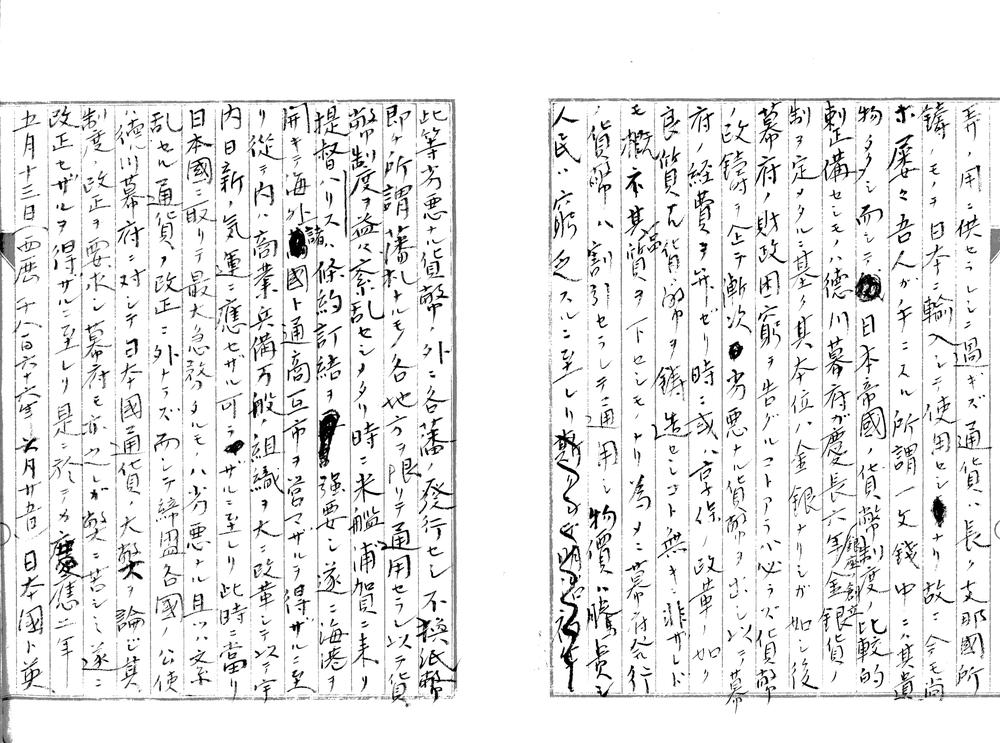 弄ノ用ニ供セラレシニ過ギズ通貨ハ長ク支那國所
鋳ノモノヲ日本ニ輸入シテ使用セシナリ故ニ今モ尚
ホ屡々吾人ガ手ニスル所謂一文銭中ニハ其遺
物多シ而シテ日本帝國ノ貨幣制度ノ比較的
整備セシモノハ徳川幕府ガ慶長六年金銀貨ノ
制ヲ定メタルニ基ク其本位ハ金銀ナリシガ如シ後
幕府ノ財政困窮ヲ告グルコトアラバ必ラズ貨幣
ノ改鋳ヲ企テ漸次劣悪ナル貨幣ヲ出シ以テ幕
府ノ経費ヲ弁ゼリ時ニ或ハ享保ノ政革ノ如ク
良質ナル貨幣ヲ鋳造センコト無キニ非ザレド
モ概ネ其品質ヲ下セシモノナリ為メニ幕府発行
ノ貨幣ハ割引セラレテ通用シ物價ハ騰貴シ
人民ハ窮乏スルニ至レリ
此等劣悪ナル貨幣ノ外ニ各藩ノ発行セシ不換紙幣
即チ所謂藩札ナルモノ各地方ヲ限リテ通用セラレ以テ貨
幣制度ヲ益々紊乱セシメタリ時ニ米艦浦賀ニ来リ
提督ハリス條約訂結ヲ強要シ遂ニ海港ヲ
開キテ海外諸國ト通商互市ヲ営マザルヲ得ザルニ至
リ従テ内ハ商業兵備万般ノ組織ヲ大ニ改革シテ以テ宇
内日新ノ気運ニ應セザル可ラザルニ至レリ此時ニ當リ
日本國ニ取リテ最大急務タルモノハ劣悪ナル且ツハ紊
乱セル通貨ノ改正ニ外ナラズ而シテ締盟各國ノ公使
ハ徳川幕府ニ対シテ日本國通貨ノ大弊ヲ論ジ其
制度ノ改正ヲ要求シ幕府モ亦之レガ弊ニ苦シミ遂ニ
改正セザルヲ得ザルニ至レリ是ニ於テカ慶應二年
五月十三日(西暦千八百六十六年六月廿五日)日本国ト英